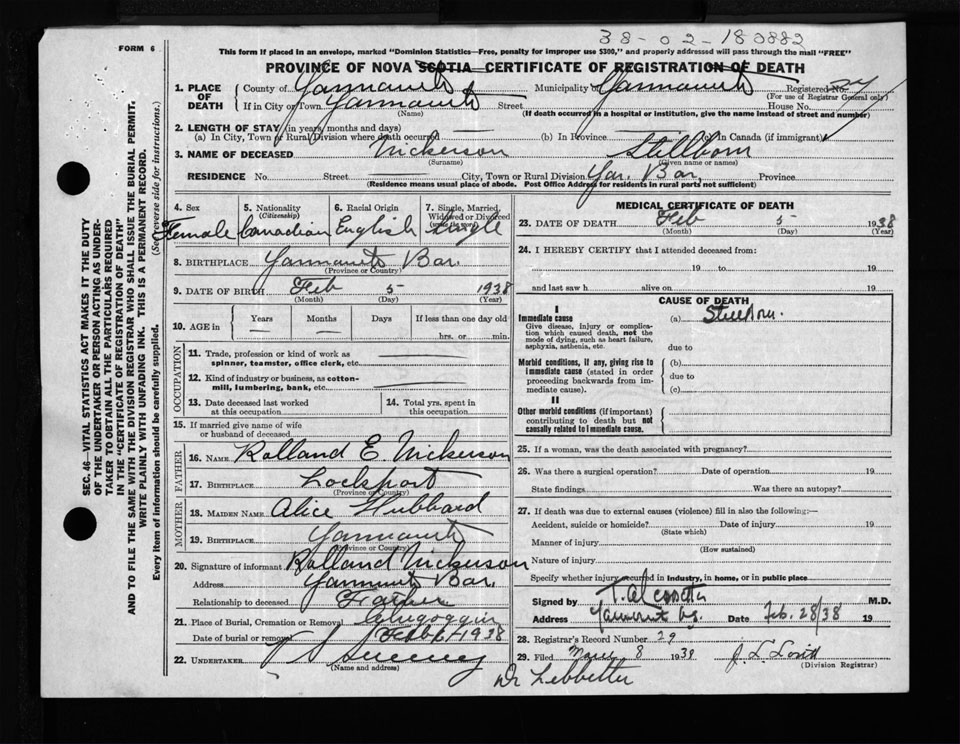 38-02-180882
FORM 6
This form if placed in an envelope, marked "Dominion Statistics—Free, penalty for improper use $300," and properly addressed will pass through the mail "FREE"
PROVINCE OF NOVA SCOTIA—CERTIFICATE OF REGISTRATION OF DEATH
1. PLACE OF DEATH County of Yarmouth Municipality of Yarmouth Registered No.
(For use of Registrar General only)
If in City or Town Yarmouth Street House No.
(Name) (If death occurred in a hospital or institution, give the name instead of street and number)
2. LENGTH OF STAY (in years, months and days)
(a) In City, Town or Rural Division where death occurred — (b) In Province — (c) In Canada (if immigrant)
3. NAME OF DECEASED Nickerson Stillborn
(Surname) (Given name or names)
RESIDENCE No. Street — City, Town or Rural Division Yar. Bar, Province
(Residence means usual place of abode. Post Office Address for residents in rural parts not sufficient)
4. Sex Female
5. Nationality (Citizenship) Canadian
6. Racial Origin English
7. Single, Married, Widowed or Divorced (write the word) Single
8. BIRTHPLACE Yarmouth Bar.
(Province or Country)
9. DATE OF BIRTH Feb 5 1938
(Month) (Day) (Year)
10. AGE in Years — Months — Days If less than one day old
hrs. or min.
OCCUPATION
11. Trade, profession or kind of work as spinner, teamster, office clerk, etc.
12. Kind of industry or business, as cotton-mill, lumbering, bank, etc.
13. Date deceased last worked at this occupation
14. Total yrs. spent in this occupation
15. If married give name of wife or husband of deceased
FATHER
16. Name Rolland E Nickerson
17. BIRTHPLACE Lockport
(Province or Country)
MOTHER
18. MAIDEN NAME Alice Hubbard
19. BIRTHPLACE Yarmouth
(Province or Country)
20. Signature of informant Rolland Nickerson
Address Yarmouth Bar,
Relationship to deceased Father
21. Place of Burial, Cremation or Removal
Date of burial or removal Feb 1938
22. UNDERTAKER Sweeney
(Name and address)
MEDICAL CERTIFICATE OF DEATH
23. DATE OF DEATH Feb 5 1938
(Month) (Day) (Year)
24. I HEREBY CERTIFY that I attended deceased from:
19 to 19
and last saw h alive on 19
CAUSE OF DEATH
I
Immediate cause (a) Stillborn.
Give disease, injury or complication which caused death, not the mode of dying, such as heart failure, asphyxia, asthenia, etc.
due to
Morbid conditions, if any, giving rise to immediate cause (stated in order proceeding backwards from immediate cause).
(b)
due to
(c)
II
Other morbid conditions (if important) contributing to death but not causally related to immediate cause.
25. If a woman, was the death associated with pregnancy?
26. Was there a surgical operation? Date of operation 19
State findings Was there an autopsy?
27. If death was due to external causes (violence) fill in also the following:—
Accident, suicide or homicide? Date of injury 19
(State which)
Manner of injury
(How sustained)
Nature of injury
Specify whether injury occurred in industry, in home, or in public place
Signed by M.D.
Address Date Feb. 28/38 19
28. Registrar's Record Number 29
29. Filed 8 1938
(Division Registrar)
Dr Lebbetter
SEC. 46—VITAL STATISTICS ACT MAKES IT THE DUTY
OF THE UNDERTAKER OR PERSON ACTING AS UNDER-
TAKER TO OBTAIN ALL THE PARTICULARS REQUIRED
IN THE "CERTIFICATE OF REGISTRATION OF DEATH"
AND TO FILE THE SAME WITH THE DIVISION REGISTRAR WHO SHALL ISSUE THE BURIAL PERMIT.
WRITE PLAINLY WITH UNFADING INK. THIS IS A PERMANENT RECORD.
Every item of information should be carefully supplied. (See reverse side for instructions.)